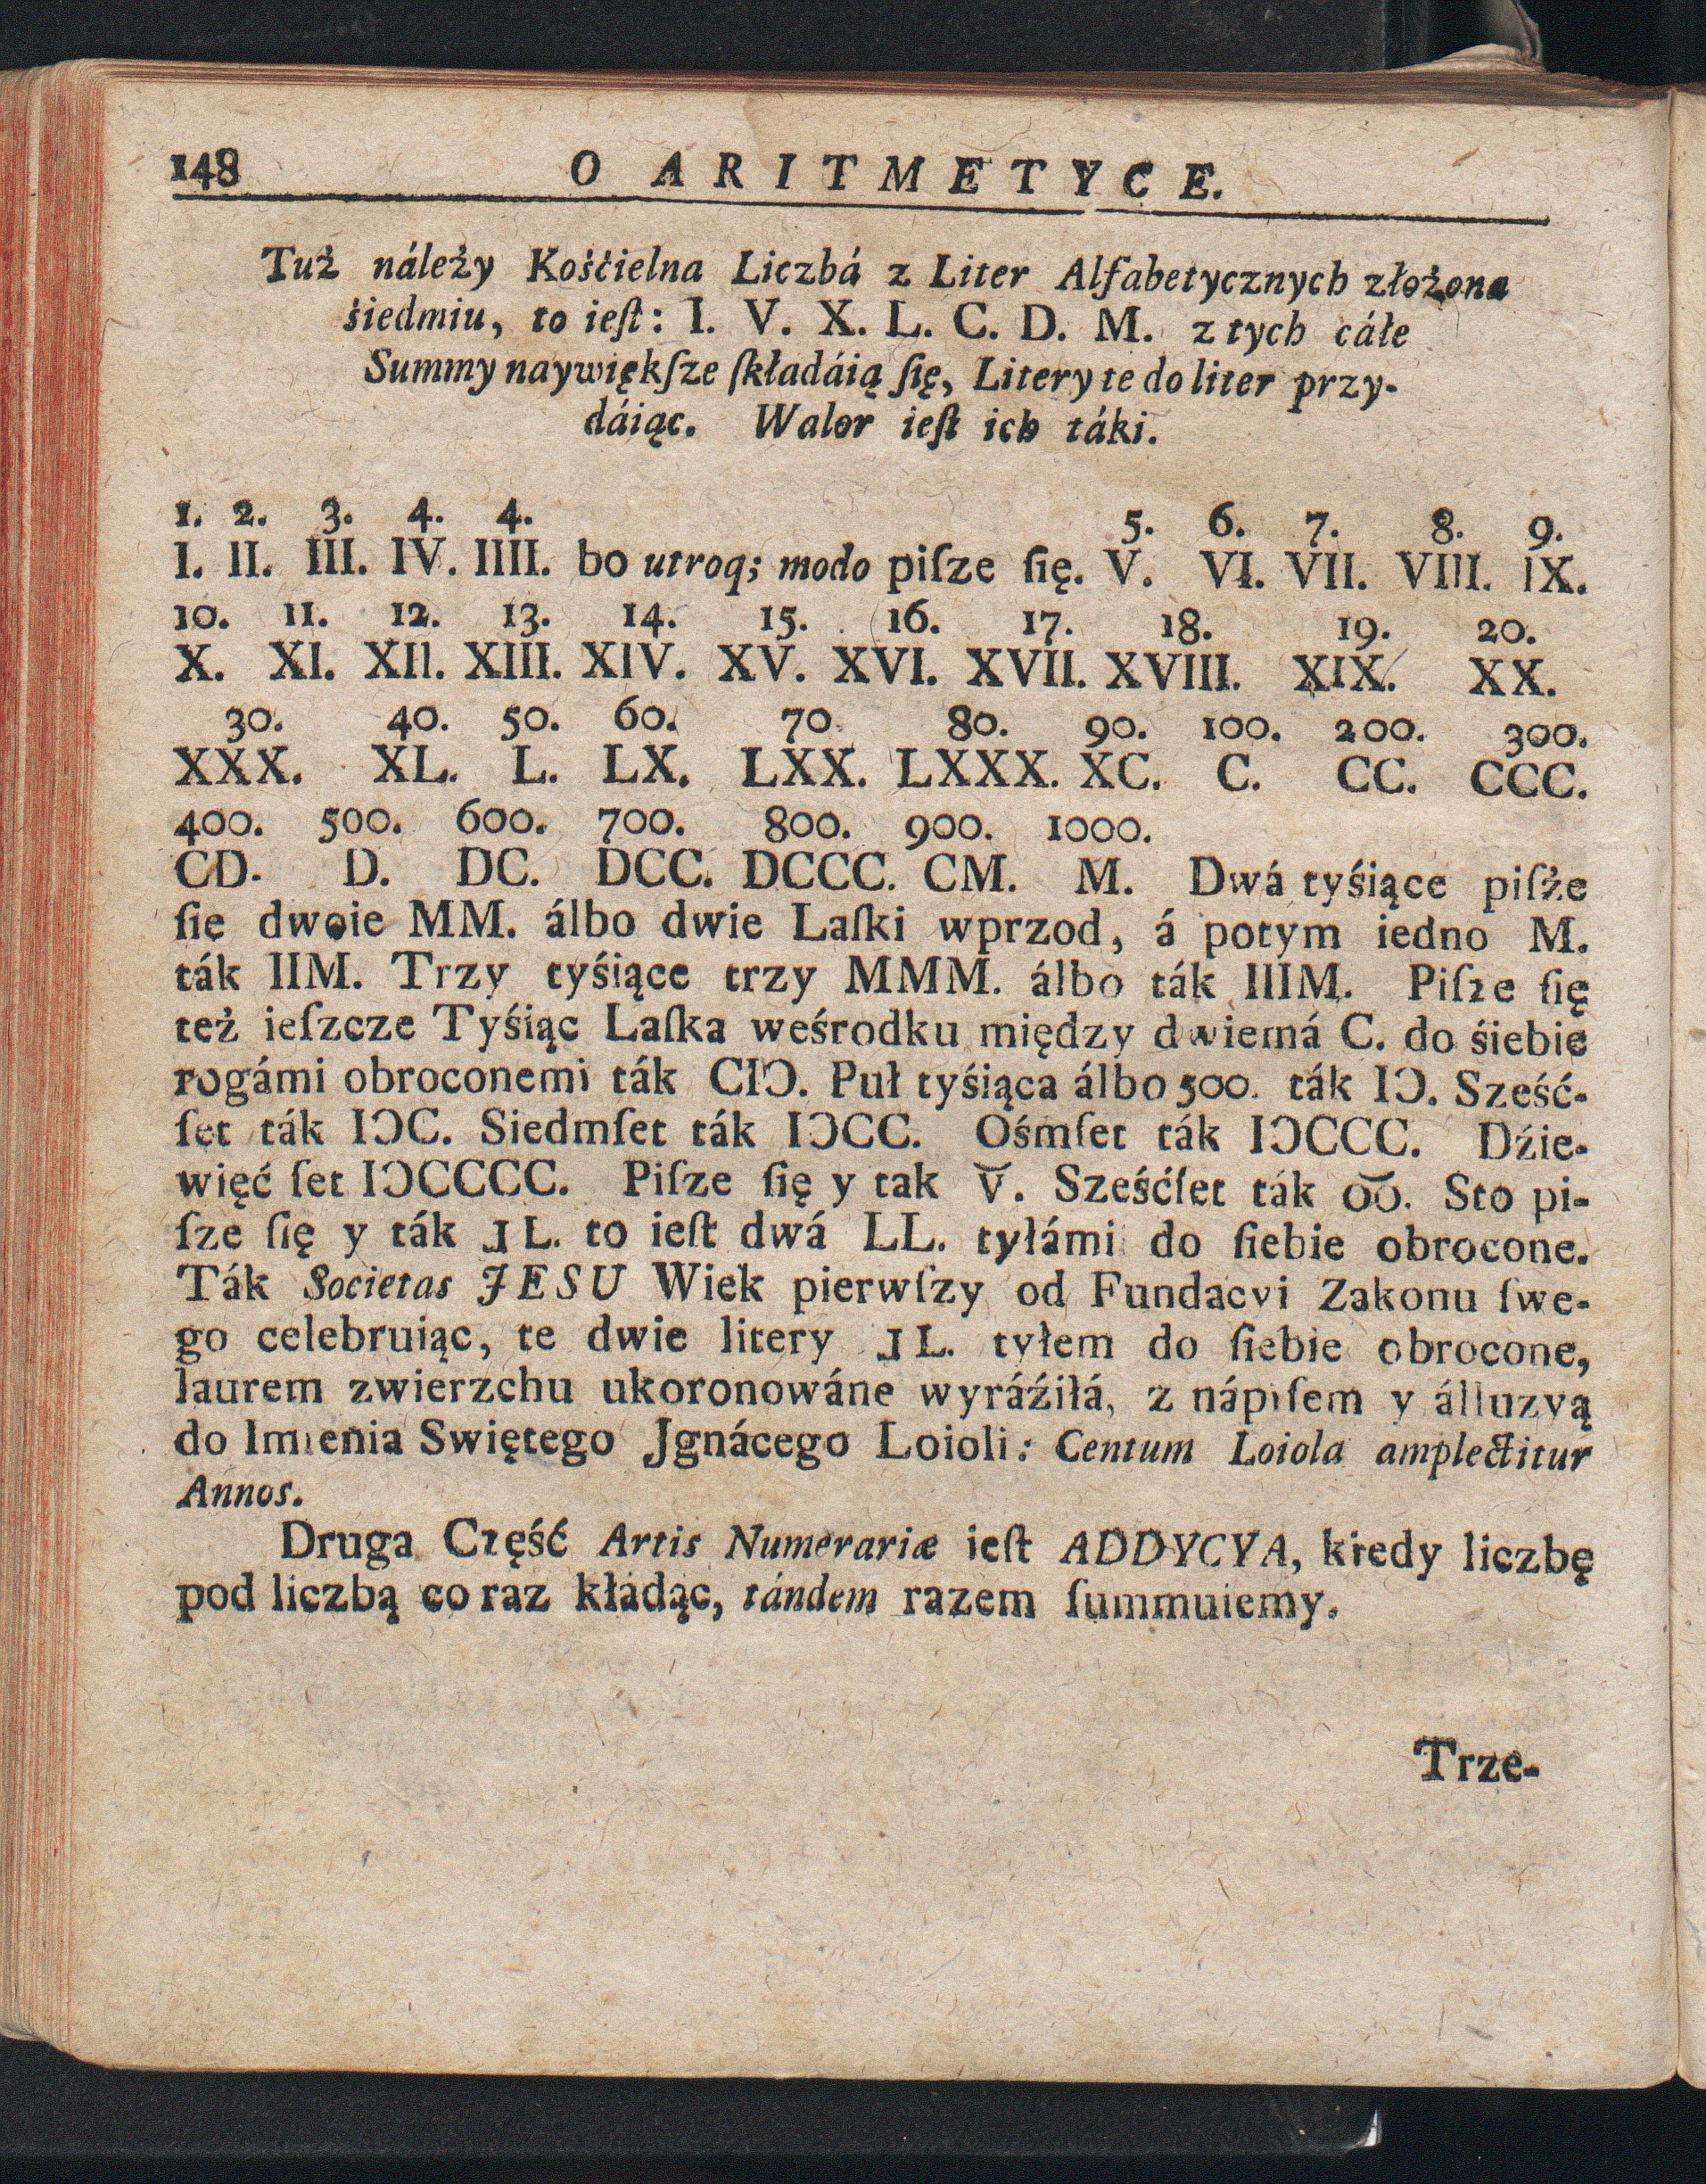 148 O ARITMETYCE.
Tuż náleży Kośćielna Liczbá z Liter Alfabetycznych złożona
śiedmiu, to ieſt: I. V. X. L. C. D. M. z tych cáłe
Summy naywiękſze ſkładáią ſię, Litery te do liter przy-
dáiąc. Walor ieſt ich táki.
1. 2. 3. 4. 4. 5. 6. 7. 8. 9.
I. II. III. IV. IIII. bo utroq; modo piſze ſię. V. VI. VII. VIII. IX.
10. 11. 12. 13. 14. 15. 16. 17. 18. 19. 20.
X. XI. XII. XIII. XIV. XV. XVI. XVII. XVIII. XIX. XX.
30. 40. 50. 60. 70. 80. 90. 100. 200. 300.
XXX. XL. L. LX. LXX. LXXX. XC. C. CC. CCC.
400. 500. 600. 700. 800. 900. 1000.
CD. D. DC. DCC. DCCC. CM. M. Dwá tyśiące piſże
ſie dwoie MM. álbo dwie Laſki wprzod, á potym iedno M.
ták IIM. Trzy tyśiące trzy MMM. álbo ták IIIM. Piſze ſię
też ieſzcze Tyśiąc Laſka weśrodku między dwiemá C. do śiebie
rogámi obroconemi ták CIↃ. Puł tyśiąca álbo 500. ták IↃ. Sześć-
ſet ták IↃC. Siedmſet ták IↃCC. Ośmſet ták IↃCCC. Dźie-
więć ſet IↃCCCC. Piſze ſię y tak V̆. Sześćſet ták o͝o. Sto pi-
ſze ſię y ták ⅃L. to ieſt dwá LL. tyłámi do ſiebie obrocone.
Ták Societas JESU Wiek pierwſzy od Fundacyi Zakonu ſwe-
go celebruiąc, te dwie litery ⅃L. tyłem do ſiebie obrocone,
laurem zwierzchu ukoronowáne wyráźiłá, z nápiſem y álluzyą
do Imienia Swiętego Jgnácego Loioli: Centum Loiola amplectitur
Annos.
Druga Część Artis Numerariæ ieſt ADDYCYA, kiedy liczbę
pod liczbą co raz kłádąc, tándem razem ſummuiemy.
Trze-